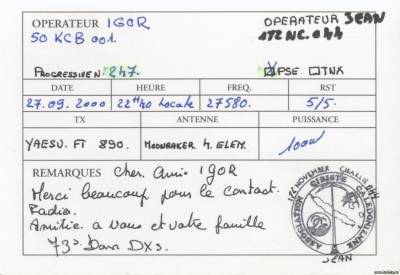 OPERATEUR IGOR
OPERATEUR JEAN
50 KCB 001.
172 NC. 044
PROGRESSIF N. 247.
PSE TNX
DATE HEURE FREQ. RST
27.09.2000 22H40 Locale 27580. 5/5.
TX ANTENNE PUISSANCE
YAESU. FT 890. MOONRAKER 4. ELEM. 100W
REMARQUES Cher. Ami. IGOR
Merci beaucoup pour le contact.
Radio.
Amitié. a vous et votre famille
73s. Dans DXs.
172 NOVEMBER CHARLIE 044
ASSOCIATION CIBISTE CALEDONIENNE
JEAN